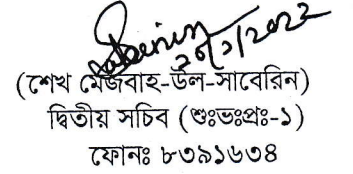 ২০/১/২০২২
(শেখ মেজবাহ-উল-সাবেরিন)
দ্বিতীয় সচিব (শুঃভঃপ্রঃ-১)
ফোনঃ ৮৩৯১৬৩৪